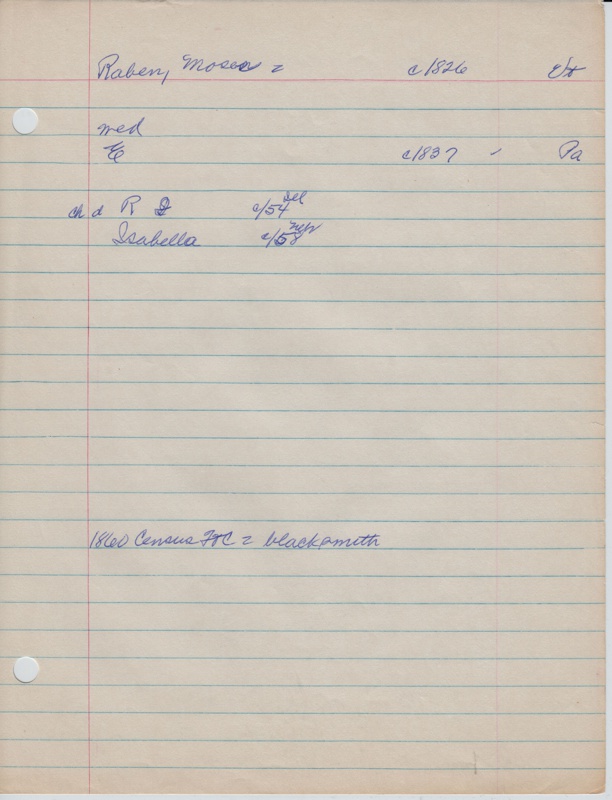 Raben, Moses = c1826 Vt
med
E c1837 Pa
ch d R c/54 Ill
Isabella c/58 Nebr
1860 Census FtC = blacksmith